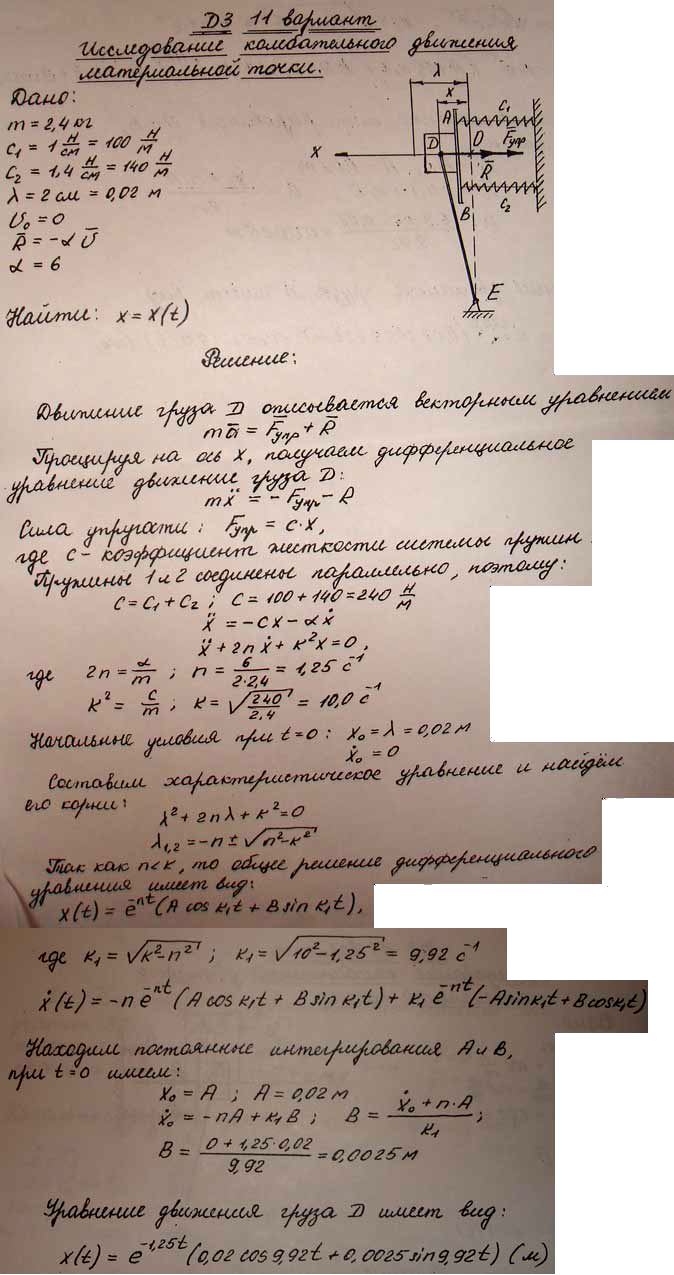 Д3 11 вариант
Исследование колебательного движения
материальной точки.
Дано:
m = 2,4 кг
c₁ = 1 Н/см = 100 Н/м
c₂ = 1,4 Н/см = 140 Н/м
λ = 2 см = 0,02 м
υ₀ = 0
R̄ = -α ῡ
α = 6
λ
x
A
c₁
x
D
O
F̄упр
R̄
B
c₂
E
Найти: x = x(t)
Решение:
Движение груза D описывается векторным уравнением
mā = F̄упр + R̄
Проецируя на ось x, получаем дифференциальное
уравнение движение груза D:
mẍ = - Fупр - R
Сила упругости: Fупр = c·x,
где c - коэффициент жесткости системы пружин.
Пружины 1 и 2 соединены параллельно, поэтому:
c = c₁ + c₂ ; c = 100 + 140 = 240 Н/м
ẍ = -cx - αẋ
ẍ + 2nẋ + k²x = 0,
где 2n = α/m ; n = 6/(2·2,4) = 1,25 с⁻¹
k² = c/m ; k = √(240/2,4) = 10,0 с⁻¹
Начальные условия при t=0 : x₀ = λ = 0,02 м
ẋ₀ = 0
Составим характеристическое уравнение и найдём
его корни:
λ² + 2nλ + k² = 0
λ₁,₂ = -n ± √(n²-k²)
Так как n<k, то общее решение дифференциального
уравнения имеет вид:
x(t) = e⁻ⁿᵗ (A cos k₁t + B sin k₁t),
где k₁ = √(k²-n²) ; k₁ = √(10²-1,25²) = 9,92 с⁻¹
ẋ(t) = -n e⁻ⁿᵗ (A cos k₁t + B sin k₁t) + k₁ e⁻ⁿᵗ (-A sin k₁t + B cos k₁t)
Находим постоянные интегрирования A и B,
при t=0 имеем:
x₀ = A ; A = 0,02 м
ẋ₀ = -nA + k₁B ; B = (ẋ₀ + n·A)/k₁ ;
B = (0 + 1,25·0,02)/9,92 = 0,0025 м
Уравнение движения груза D имеет вид:
x(t) = e^(-1,25t) (0,02 cos 9,92t + 0,0025 sin 9,92t) (м)